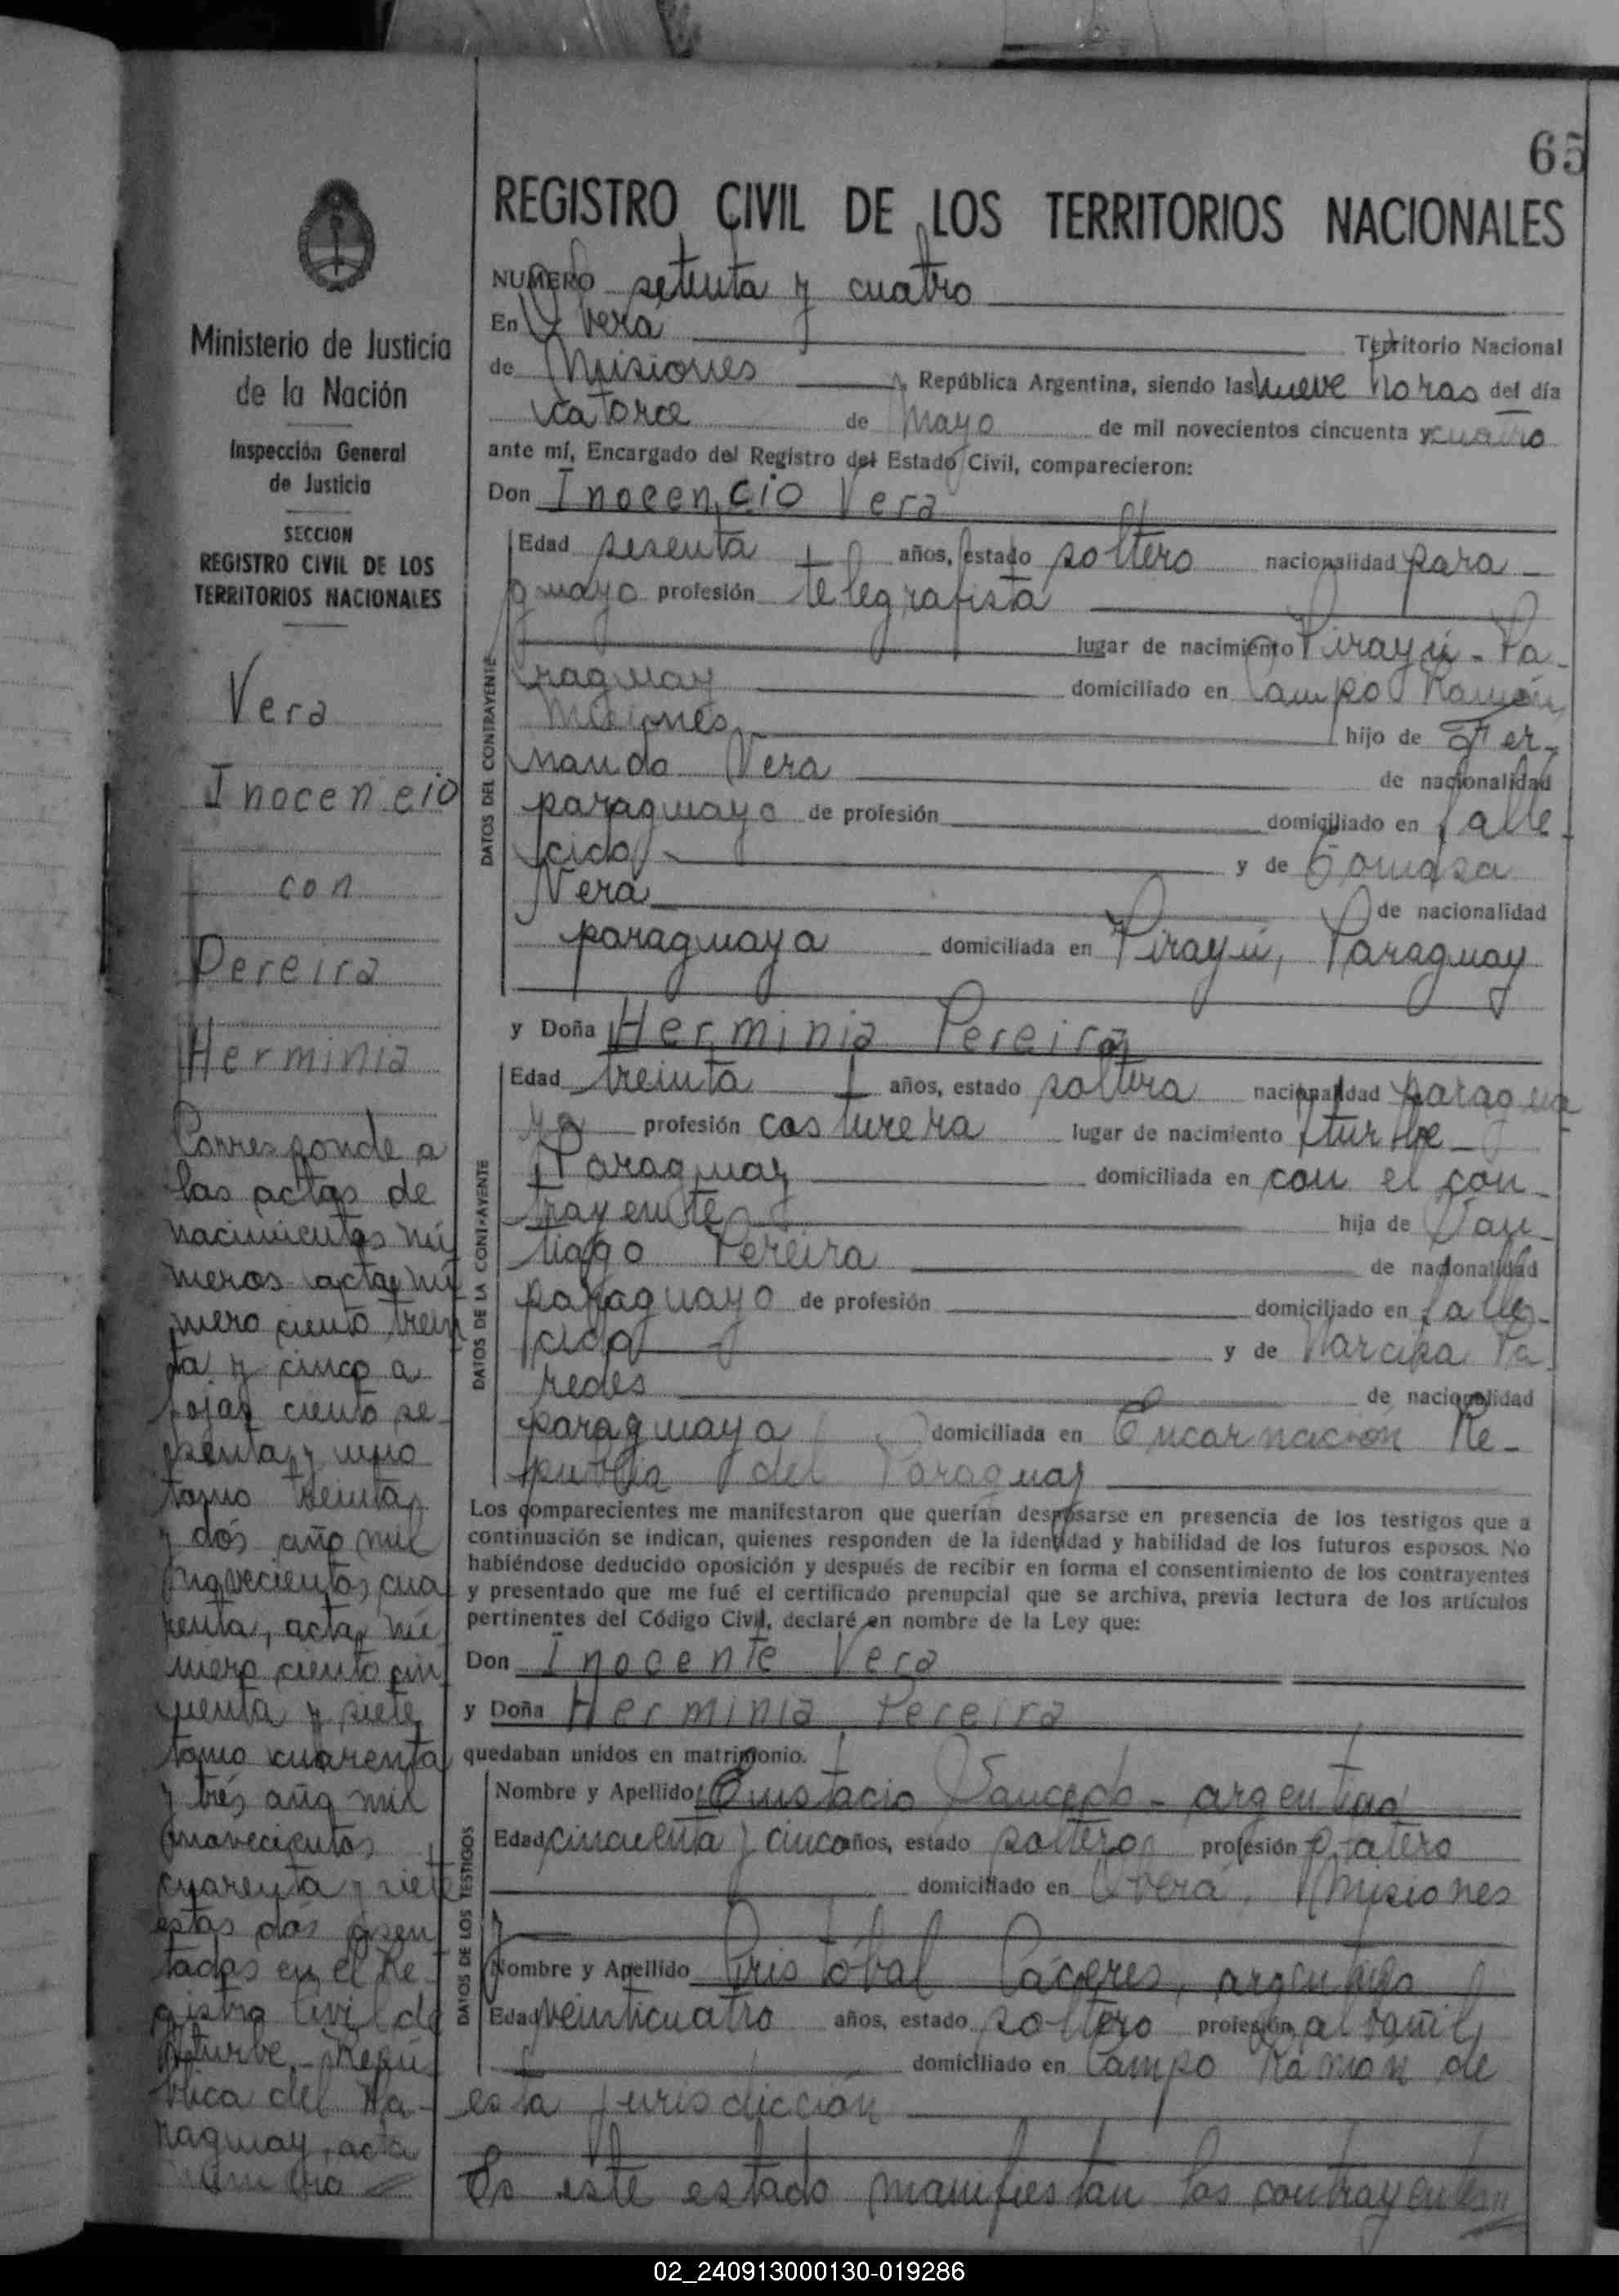 65
REGISTRO CIVIL DE LOS TERRITORIOS NACIONALES
Ministerio de Justicia
de la Nación
Inspección General
de Justicia
SECCION
REGISTRO CIVIL DE LOS
TERRITORIOS NACIONALES
Vera
Inocencio
con
Pereira
Herminia
Corresponde a
las actas de
nacimientos nú
meros acta nú
mero ciento trein
ta y cinco a
fojas ciento se
senta y uno
tomo treinta
y dós año mil
novecientos cua
renta, acta nú
mero ciento cin
cuenta y siete
tomo cuarenta
y trés año mil
novecientos
cuarenta y siete
estas dos asen
tadas en el Re
gistro Civil de
Iturbe, Repú
blica del Pa-
raguay, acta
NUMERO setenta y cuatro
En Overá Territorio Nacional
de Misiones, República Argentina, siendo las nueve horas del día
catorce de Mayo de mil novecientos cincuenta y cuatro
ante mí, Encargado del Registro del Estado Civil, comparecieron:
Don Inocencio Vera
DATOS DEL CONTRAYENTE
Edad sesenta años, estado soltero nacionalidad para-
guayo profesión telegrafista
lugar de nacimiento Pirayú - Pa-
raguay domiciliado en Campo Ramón
Misiones hijo de Fer-
nando Vera de nacionalidad
paraguayo de profesión domiciliado en falle-
cido y de Tomasa
Vera de nacionalidad
paraguaya domiciliada en Pirayú, Paraguay
y Doña Herminia Pereira
DATOS DE LA CONTRAYENTE
Edad treinta años, estado soltera nacionalidad paragua-
ya profesión costurera lugar de nacimiento Iturbe -
Paraguay domiciliada en con el con-
trayente hija de San-
tiago Pereira de nacionalidad
paraguayo de profesión domiciliado en falle-
cido y de Narcisa Pa-
redes de nacionalidad
paraguaya domiciliada en Encarnación Re-
pública del Paraguay
Los comparecientes me manifestaron que querían desposarse en presencia de los testigos que a
continuación se indican, quienes responden de la identidad y habilidad de los futuros esposos. No
habiéndose deducido oposición y después de recibir en forma el consentimiento de los contrayentes
y presentado que me fué el certificado prenupcial que se archiva, previa lectura de los artículos
pertinentes del Código Civil, declaré en nombre de la Ley que:
Don Inocente Vera
y Doña Herminia Pereira
quedaban unidos en matrimonio.
DATOS DE LOS TESTIGOS
Nombre y Apellido Eustacio Saucedo - argentino
Edad cincuenta y cinco años, estado soltero profesión platero
domiciliado en Overá, Misiones
y
Nombre y Apellido Cristóbal Cáceres, argentino
Edad veinticuatro años, estado soltero profesión albañil
domiciliado en Campo Ramón de
esta jurisdicción
En este estado manifiestan los contrayentes
02_240913000130-019286